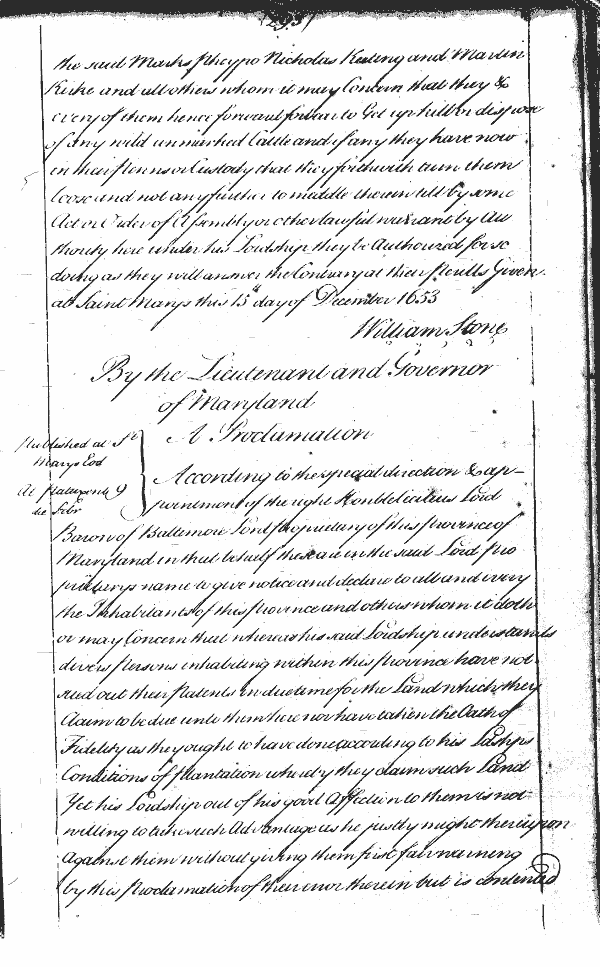 293
the said Marks Pheypo Nicholas Keiting and Martin
Kirke and all others whom it may Concern that they &
every of them hence forward forbear to Get up kill or dispose
of any wild unmarked Cattle and if any they have now
in their Penns or Custody that they forthwith turn them
loose and not any further to meddle therein till by some
Act or Order of Assembly or other lawful warrant by Au
thority here under his Lordship they be Authorized for so
doing as they will answer the Contrary at their Perills Given
at Saint Marys this 15th day of December 1653
William Stone
By the Lieutenant and Governor
of Maryland
Published at St
Marys Eod
At Patuxent 9
die Febr
A Proclamation
According to the special direction & ap-
pointment of the right Honble Cecilius Lord
Baron of Baltimore Lord Proprietary of this province of
Maryland in that behalf these are in the said Lord Pro
prietarys name to give notice and declare to all and every
the Inhabitants of this Province and others whom it doth
or may Concern that whereas his said Lordship understands
divers Persons inhabiting within this Province have not
sued out their Patents in due time for the Land which they
Claim to be due unto them here nor have taken the Oath of
Fidelity as they ought to have done according to his Ldships
Conditions of Plantation whereby they claim such Land
Yet his Lordship out of his good Affection to them is not
willing to take such Advantage as he justly might thereupon
against them without giving them first fair warning
by this Proclamation of their error therein but is contented